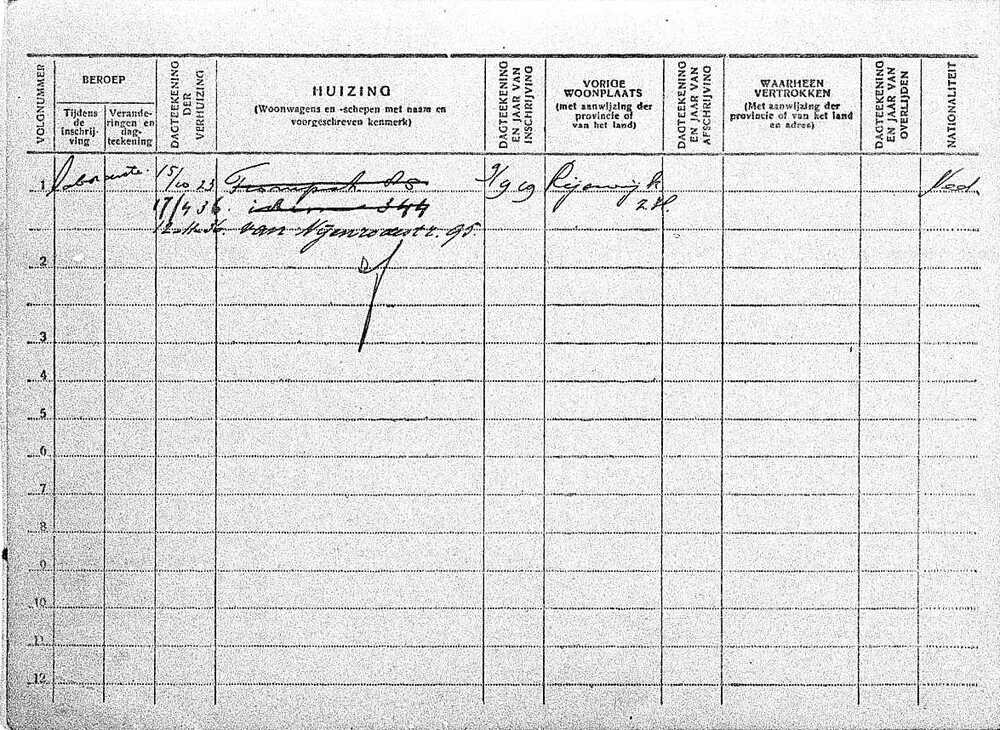 VOLGNUMMER
BEROEP
Tijdens
de
inschrij-
ving
Verande-
ringen en
dag-
teekening
DAGTEEKENING
DER
VERHUIZING
HUIZING
(Woonwagens en -schepen met naam en
voorgeschreven kenmerk)
DAGTEEKENING
EN JAAR VAN
INSCHRIJVING
VORIGE
WOONPLAATS
(met aanwijzing der
provincie of
van het land)
DAGTEEKENING
EN JAAR VAN
AFSCHRIJVING
WAARHEEN
VERTROKKEN
(Met aanwijzing der
provincie of van het land
en adres)
DAGTEEKENING
EN JAAR VAN
OVERLIJDEN
NATIONALITEIT
1 15/10 23 9/9 19 Rijswijk Ned.
17/4 36. idem 344 Z.H.
12-11-36. van Nijenrodestr. 95.
2
3
4
5
6
7
8
9
10
11
12